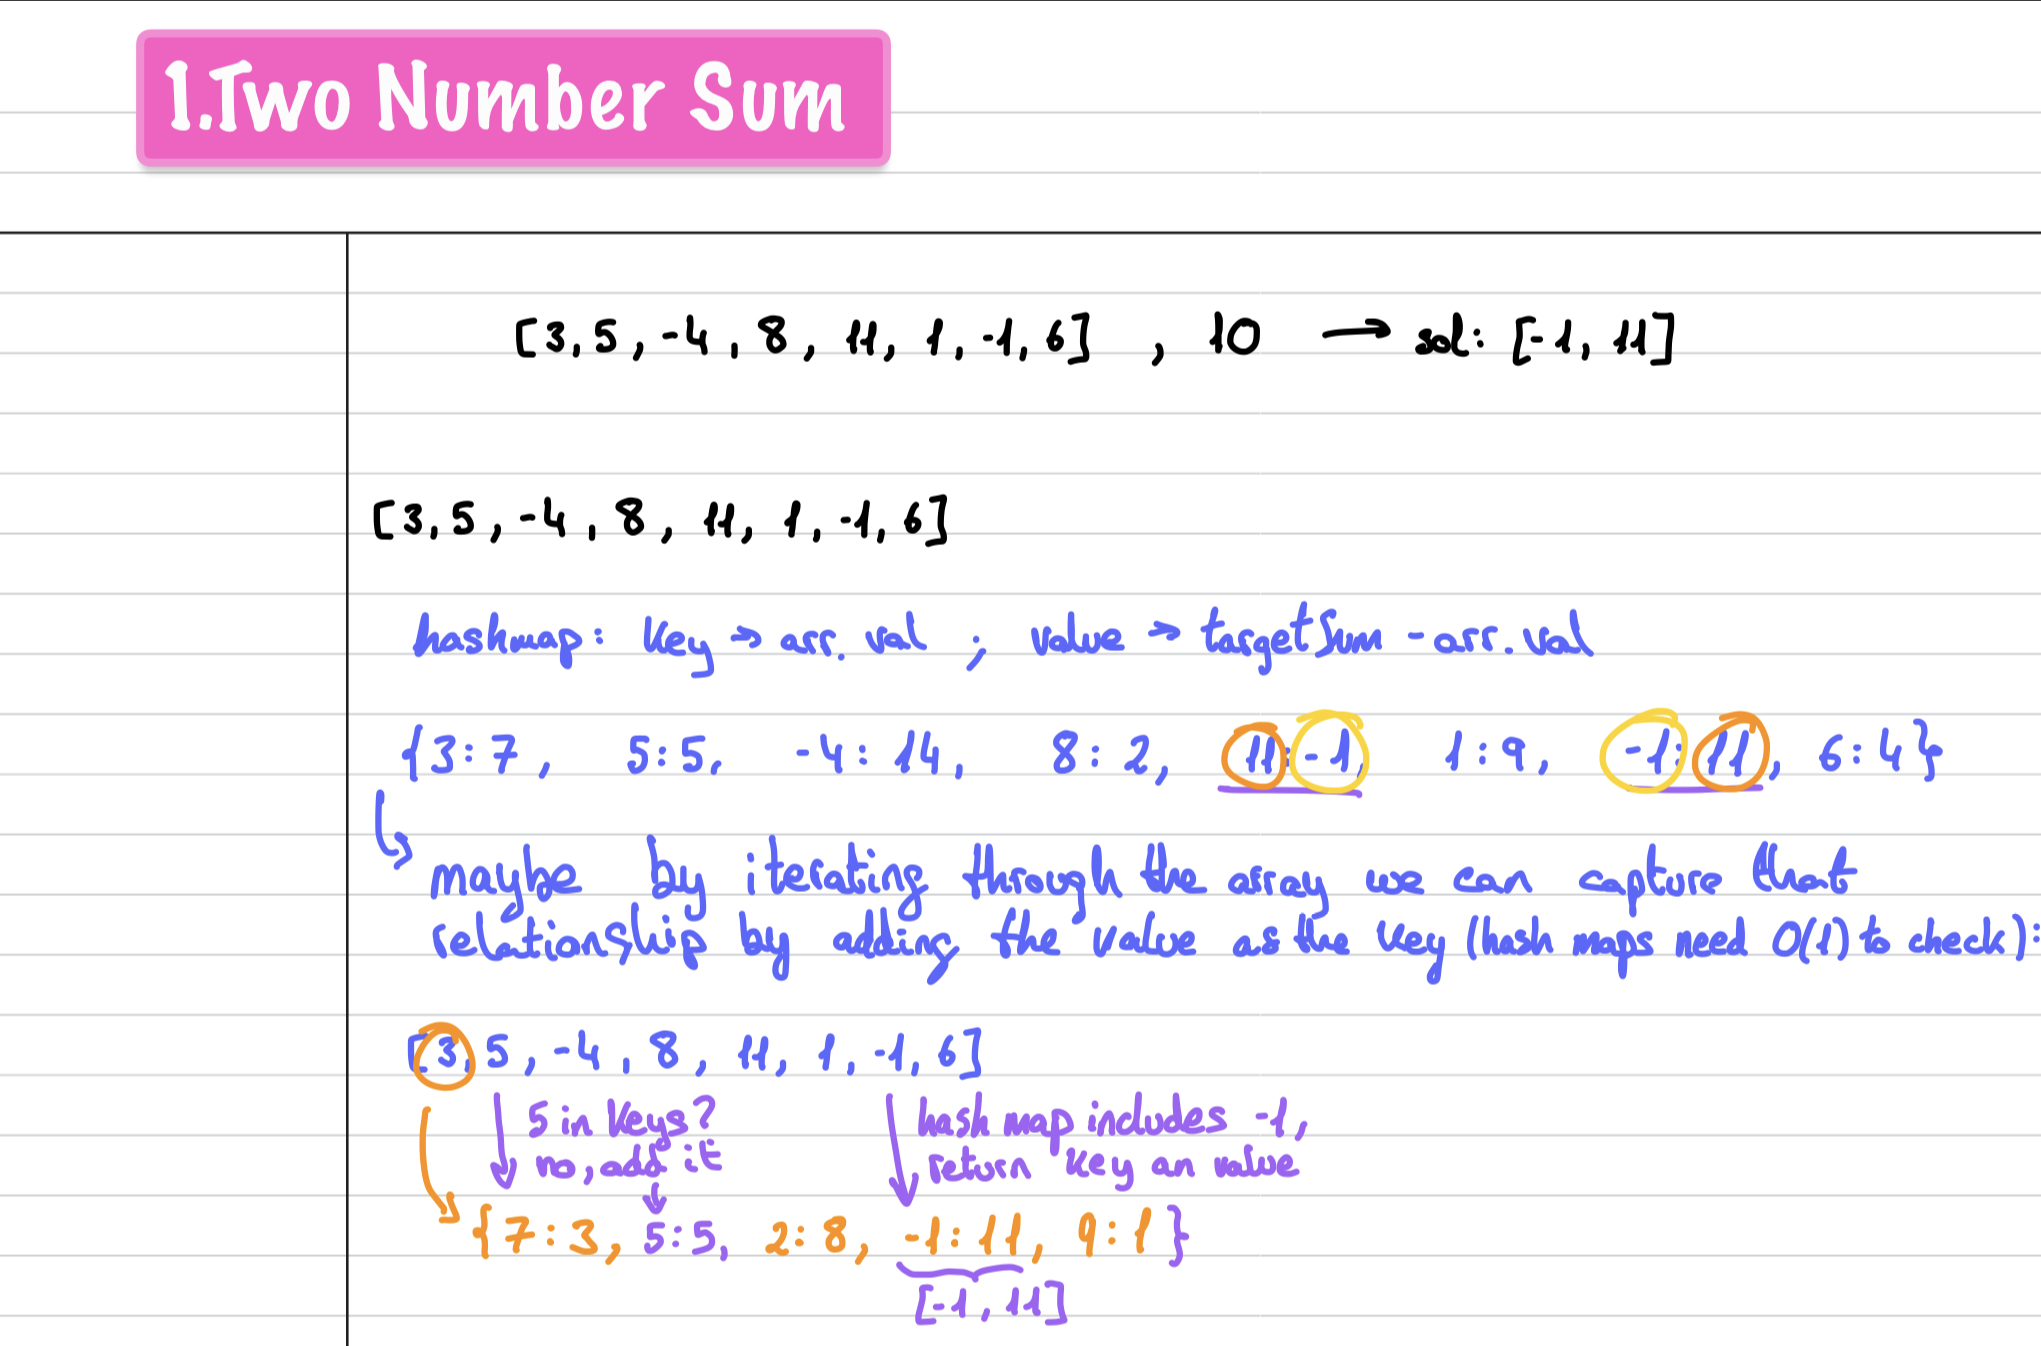 1.Two Number Sum
[3, 5, -4, 8, 11, 1, -1, 6] , 10 → sol: [-1, 11]
[3, 5, -4, 8, 11, 1, -1, 6]
hashmap: key → arr.val ; value → targetSum - arr.val
{3:7, 5:5, -4:14, 8:2, 11:-1, 1:9, -1:11, 6:4}
maybe by iterating through the array we can capture that
relationship by adding the value as the key (hash maps need O(1) to check):
[3, 5, -4, 8, 11, 1, -1, 6]
5 in keys?
no, add it
hash map includes -1,
return key an value
{7:3, 5:5, 2:8, -1:11, 9:1}
[-1, 11]